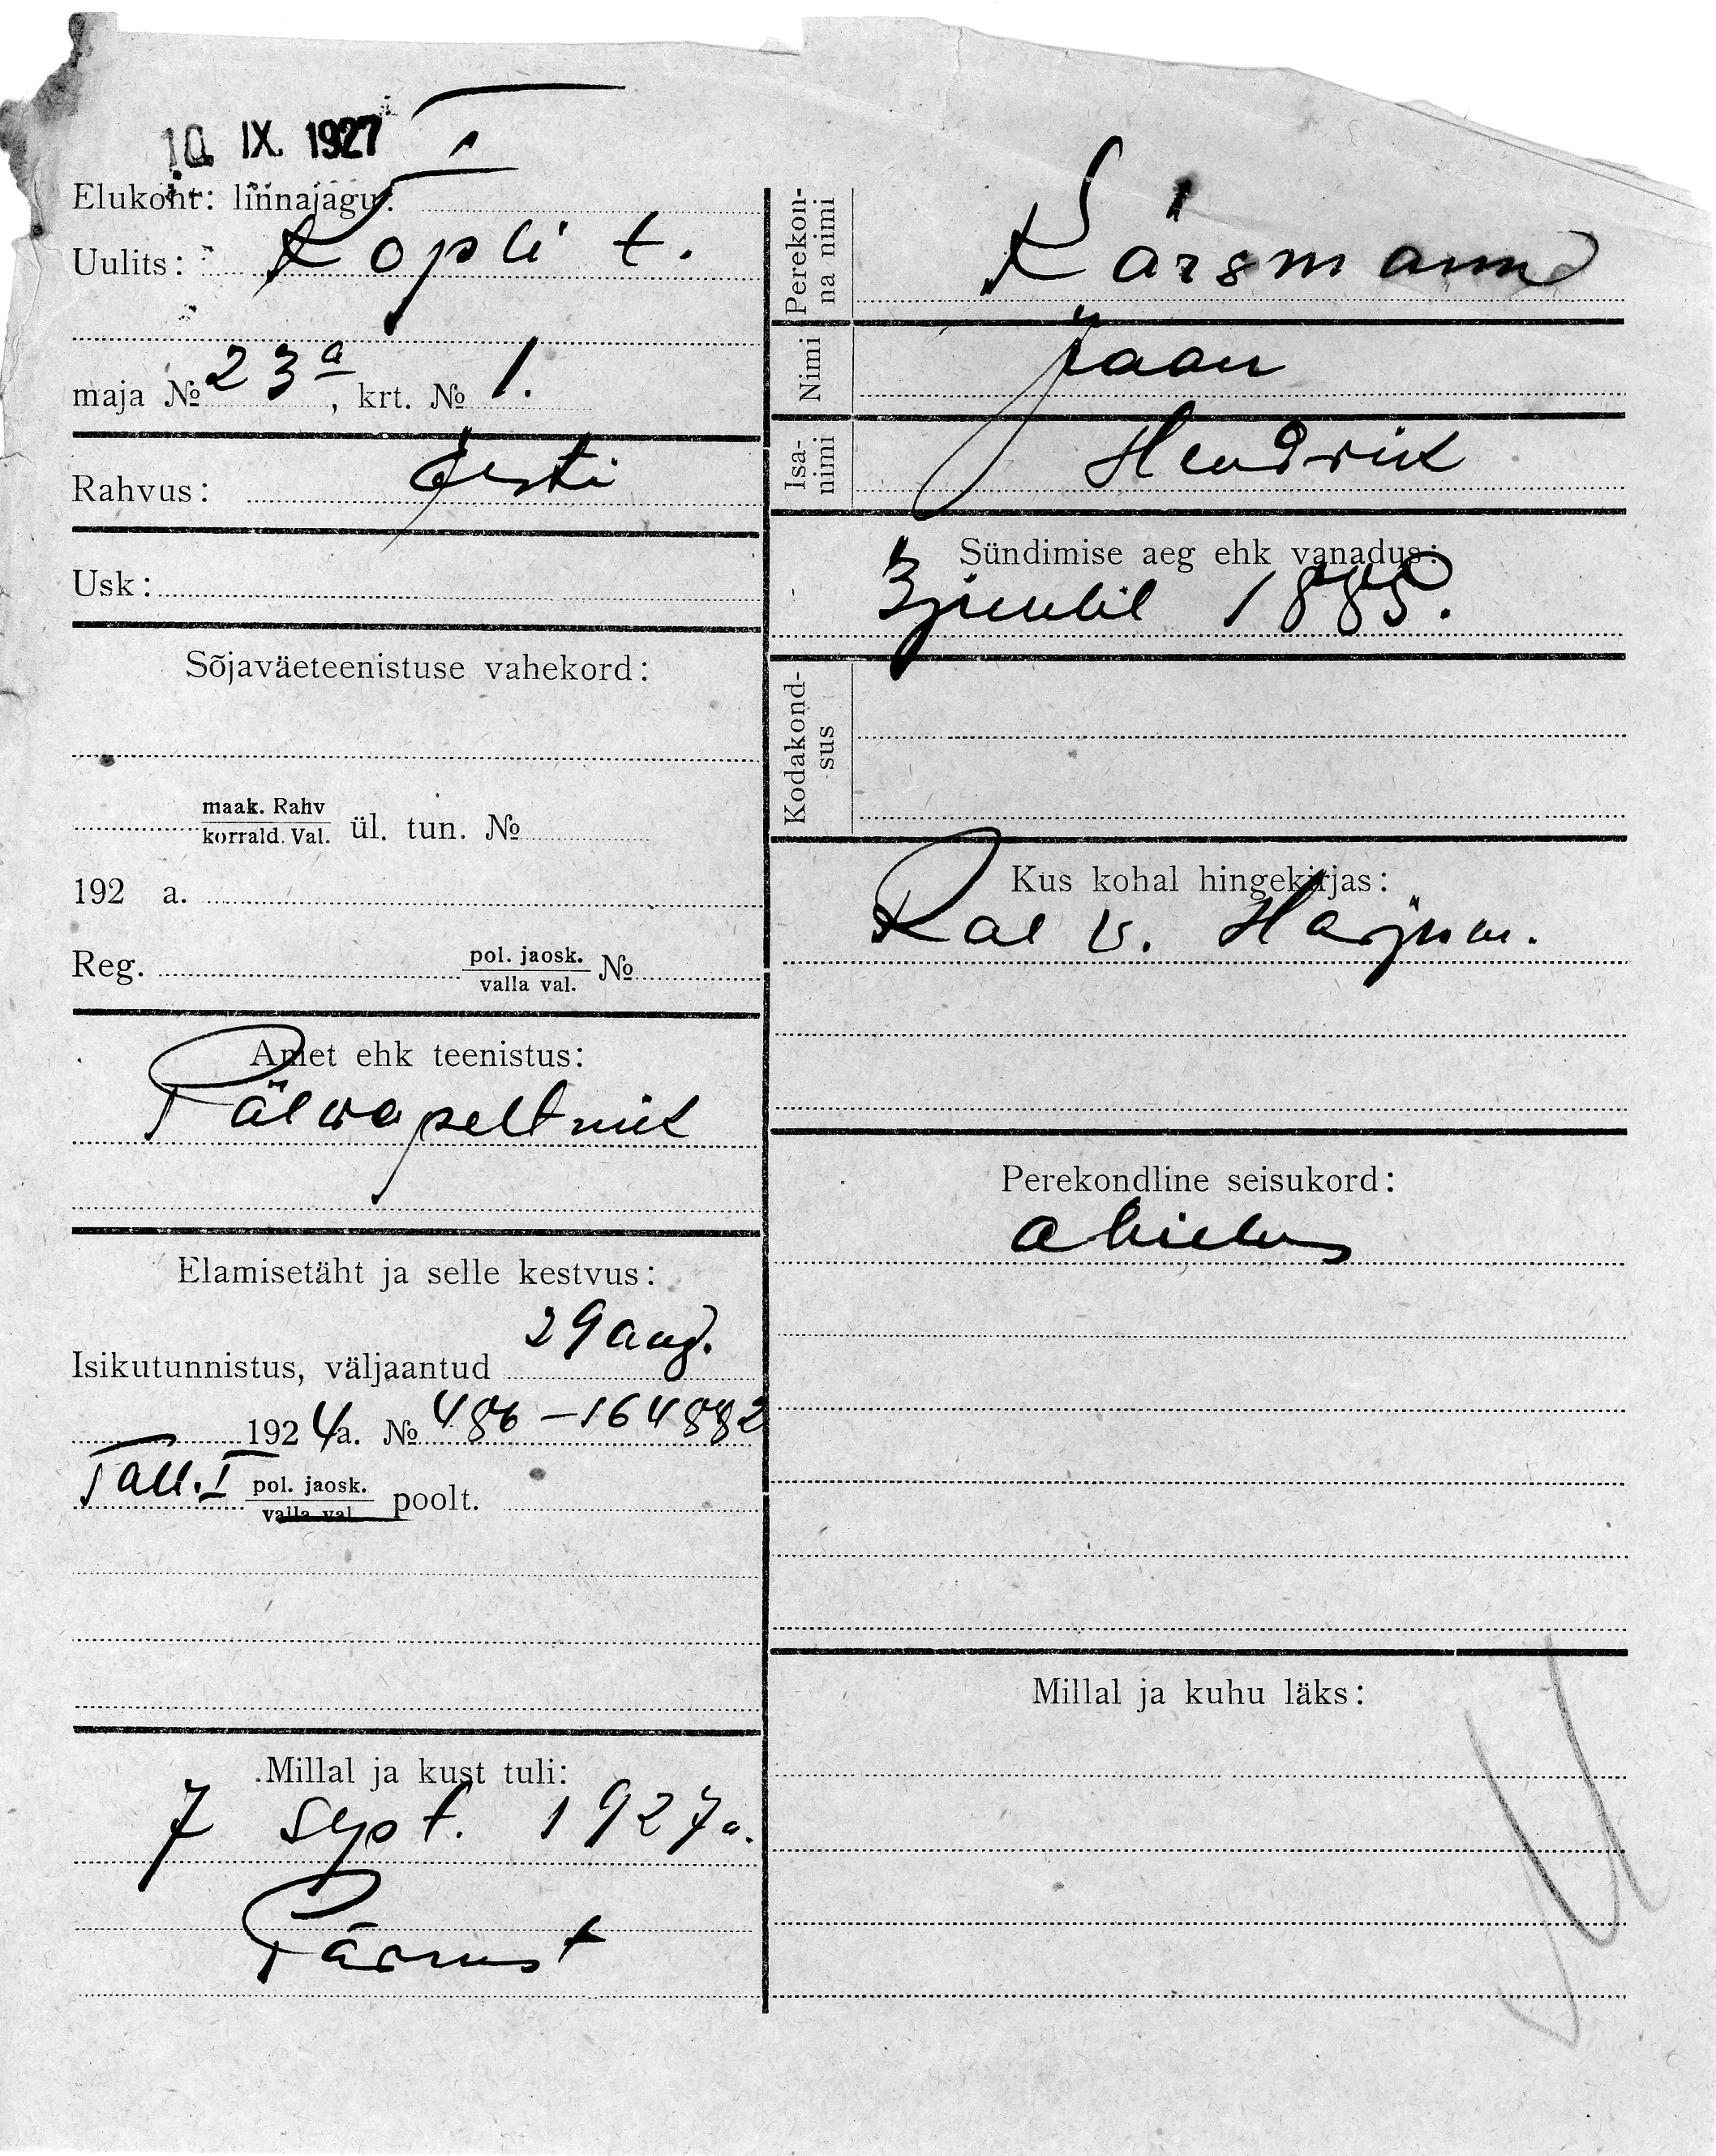 10. IX. 1927
Elukoht: linnajagu:
Uulits: Kopli t.
maja № 23a, krt. № 1.
Rahvus: Eesti
Usk:
Sõjaväeteenistuse vahekord:
maak. Rahv
korrald. Val. ül. tun. №
192 a.
Reg. pol. jaosk.
valla val. №
Amet ehk teenistus:
Päewapeltnik
Elamisetäht ja selle kestvus:
29 aug.
Isikutunnistus, väljaantud
1924 a. № 486–164882
Tall. I pol. jaosk.
valla val. poolt.
Millal ja kust tuli:
7 sept. 1927 a.
Pärnust
Perekon-
na nimi
Kärsmann
Nimi Jaan
Isa-
nimi
Hendrik
Sündimise aeg ehk vanadus:
3 juulil 1885.
Kodakond-
sus
Kus kohal hingekirjas:
Rae v. Harjum.
Perekondline seisukord:
abielus
Millal ja kuhu läks: